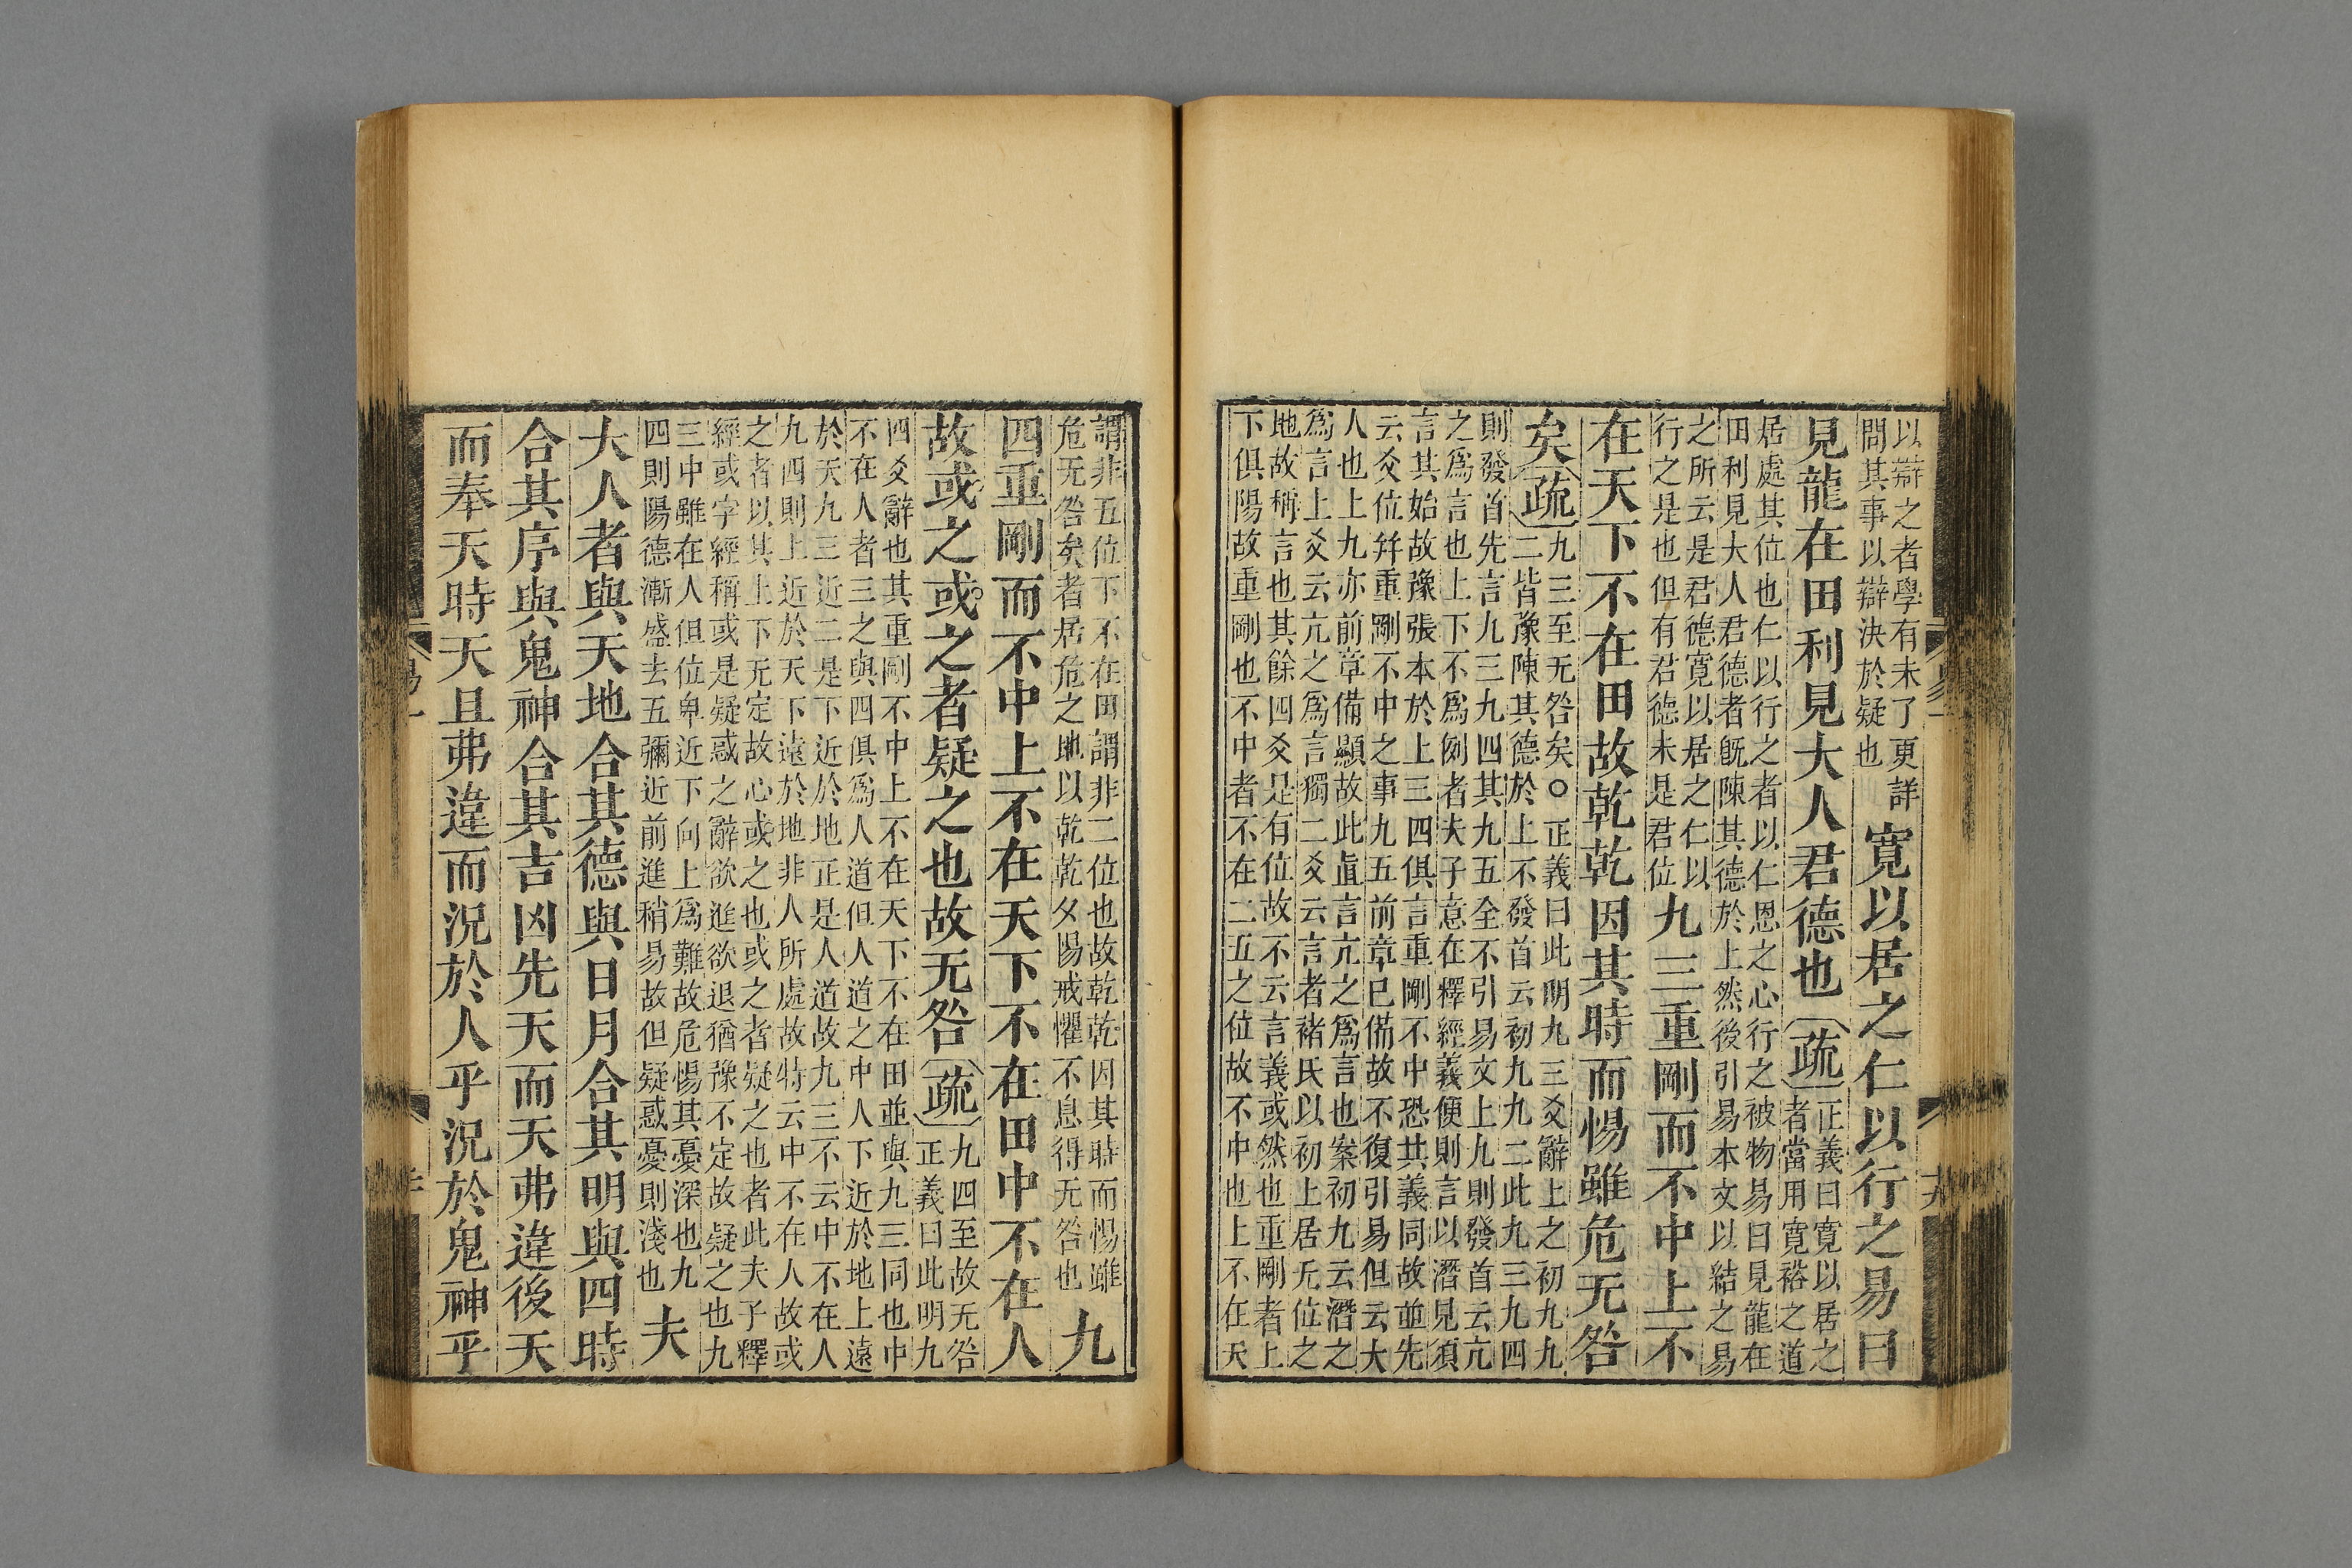 以辯之者學有未了更詳
問其事以辯決於疑也
寬以居之仁以行之易曰
見龍在田利見大人君德也疏
正義曰寬以居之
者當用寬裕之道
居處其位也仁以行之者以仁恩之心行之被物易曰見龍在
田利見大人君德者旣陳其德於上然後引易本文以結之易
之所云是君德寬以居之仁以
行之是也但有君德未是君位
九三重剛而不中上不
在天下不在田故乾乾因其時而惕雖危无咎
矣疏
九三至无咎矣○正義曰此明九三爻辭上之初九九
二皆豫陳其德於上不發首云初九九二此九三九四
則發首先言九三九四其九五全不引易文上九則發首云亢
之爲言也上下不爲例者夫子意在釋經義便則言以潛見須
言其始故豫張本於上三四俱言重剛不中恐其義同故並先
云爻位幷重剛不中之事九五前章已備故不復引易但云大
人也上九亦前章備顯故此直言亢之爲言也案初九云潛之
爲言上爻云亢之爲言獨二爻云言者褚氏以初上居无位之
地故稱言也其餘四爻是有位故不云言義或然也重剛者上
下俱陽故重剛也不中者不在二五之位故不中也上不在天
謂非五位下不在田謂非二位也故乾乾因其時而惕雖
危无咎矣者居危之地以乾乾夕惕戒懼不息得无咎也
九
四重剛而不中上不在天下不在田中不在人
故或之或之者疑之也故无咎疏
九四至故无咎
正義曰此明九
四爻辭也其重剛不中上不在天下不在田並與九三同也中
不在人者三之與四俱爲人道但人道之中人下近於地上遠
於天九三近二是下近於地正是人道故九三不云中不在人
九四則上近於天下遠於地非人所處故特云中不在人故或
之者以其上下无定故心或之也或之者疑之也者此夫子釋
經或字經稱或是疑惑之辭欲進欲退猶豫不定故疑之也九
三中雖在人但位卑近下向上爲難故危惕其憂深也九
四則陽德漸盛去五彌近前進稍易故但疑惑憂則淺也
夫
大人者與天地合其德與日月合其明與四時
合其序與鬼神合其吉凶先天而天弗違後天
而奉天時天且弗違而況於人乎況於鬼神乎